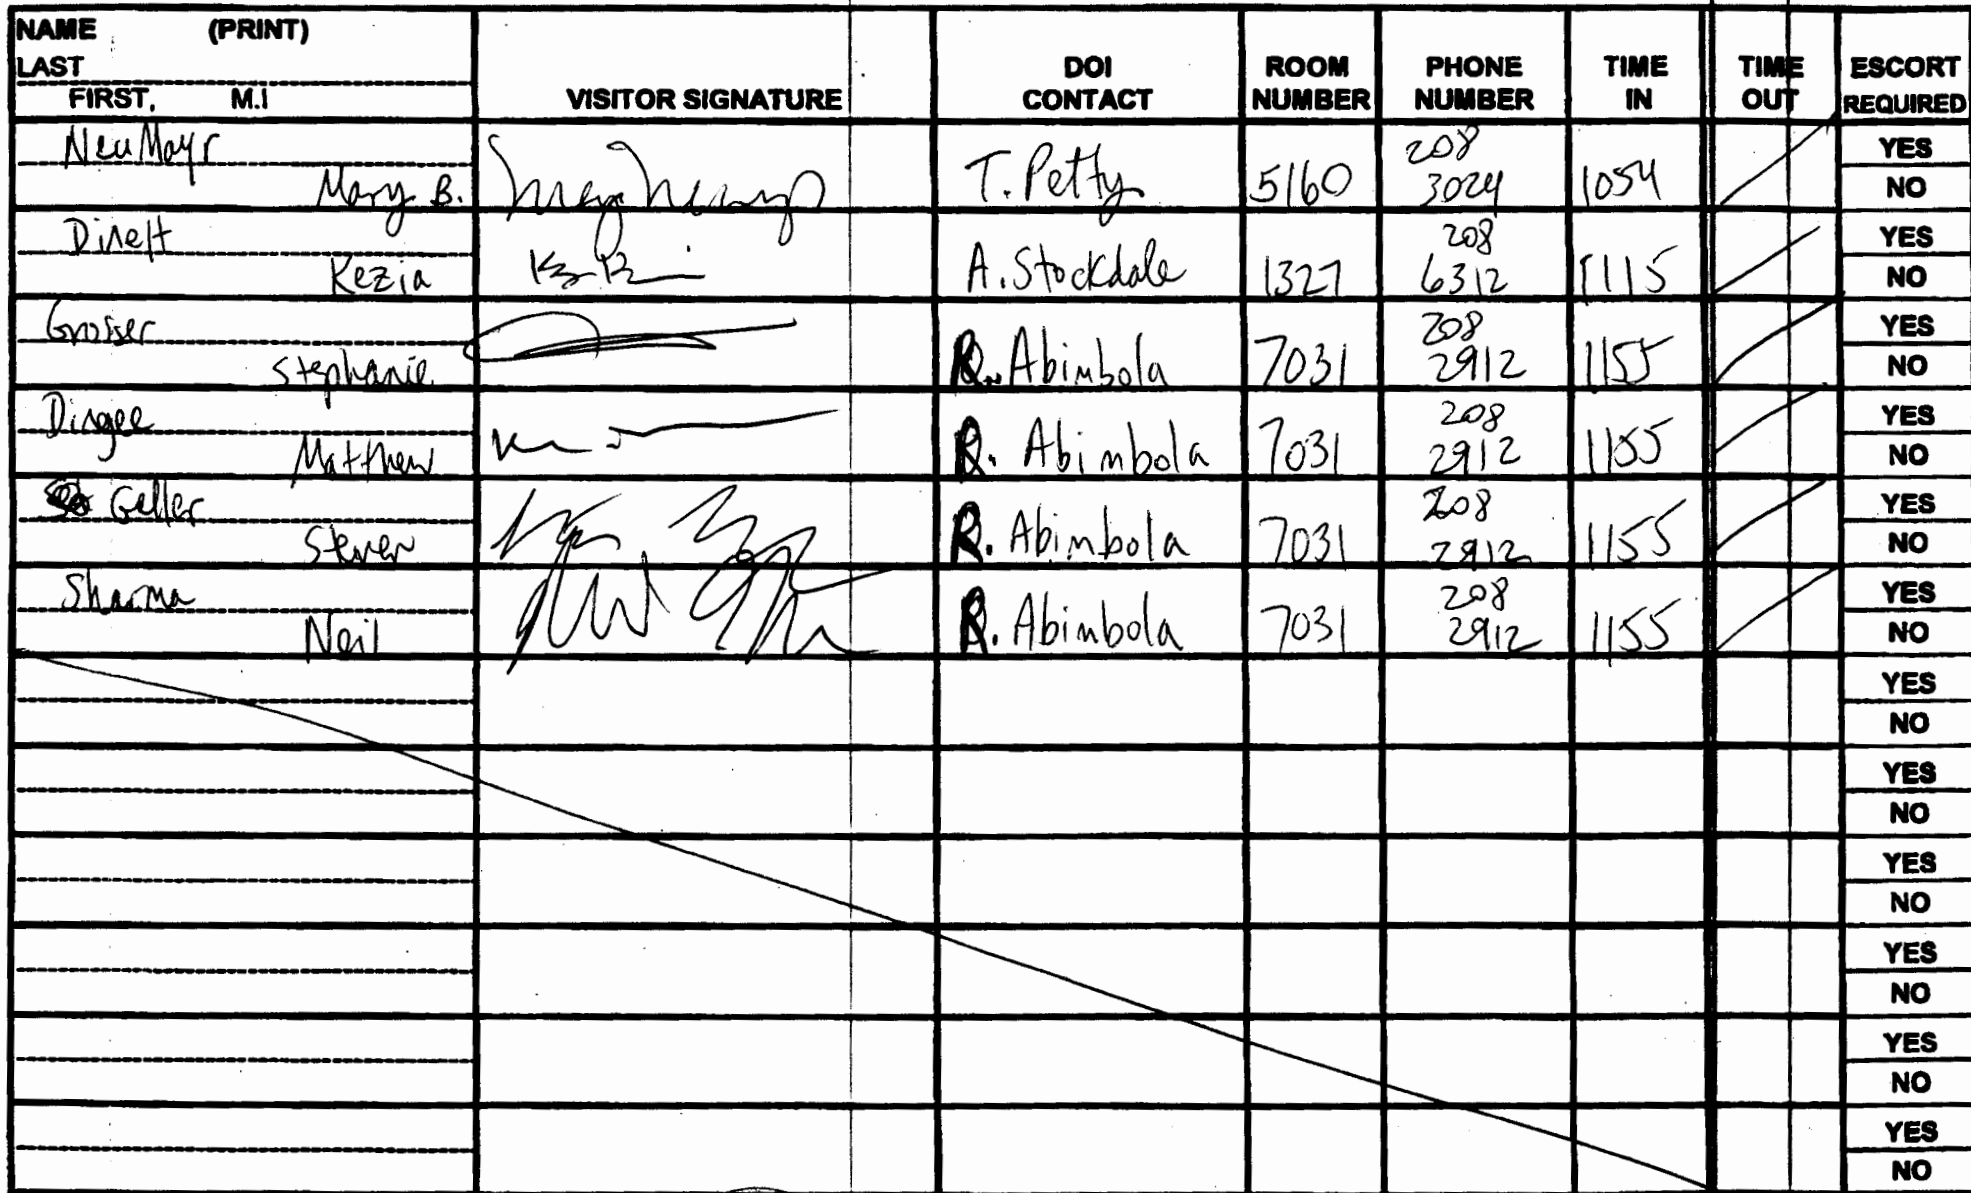 NAME (PRINT)
LAST
FIRST, M.I
VISITOR SIGNATURE
DOI
CONTACT
ROOM
NUMBER
PHONE
NUMBER
TIME
IN
TIME
OUT
ESCORT
REQUIRED
NeuMayr
Mary B.
T. Petty
5160
208
3024
1054
YES
NO
Kezia
A. Stockdale
1327
208
6312
1115
YES
NO
Grosser
Stephanie
R. Abimbola
7031
208
2912
1155
YES
NO
Dingee
Matthew
R. Abimbola
7031
208
2912
1155
YES
NO
Geller
Steven
R. Abimbola
7031
208
2912
1155
YES
NO
Sharma
Neil
R. Abimbola
7031
208
2912
1155
YES
NO
YES
NO
YES
NO
YES
NO
YES
NO
YES
NO
YES
NO